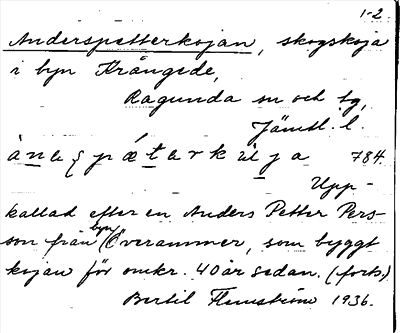 1-2.
Anderspetterkojan, skogskoja
i byn Krångede,
Ragunda sn och tg,
Jämtl. l.
784.
Upp-
kallad efter en Anders Petter Pers-
son från byn Överammer, som byggt
kojan för omkr. 40 år sedan. (forts.)
Bertil Flemström 1936.